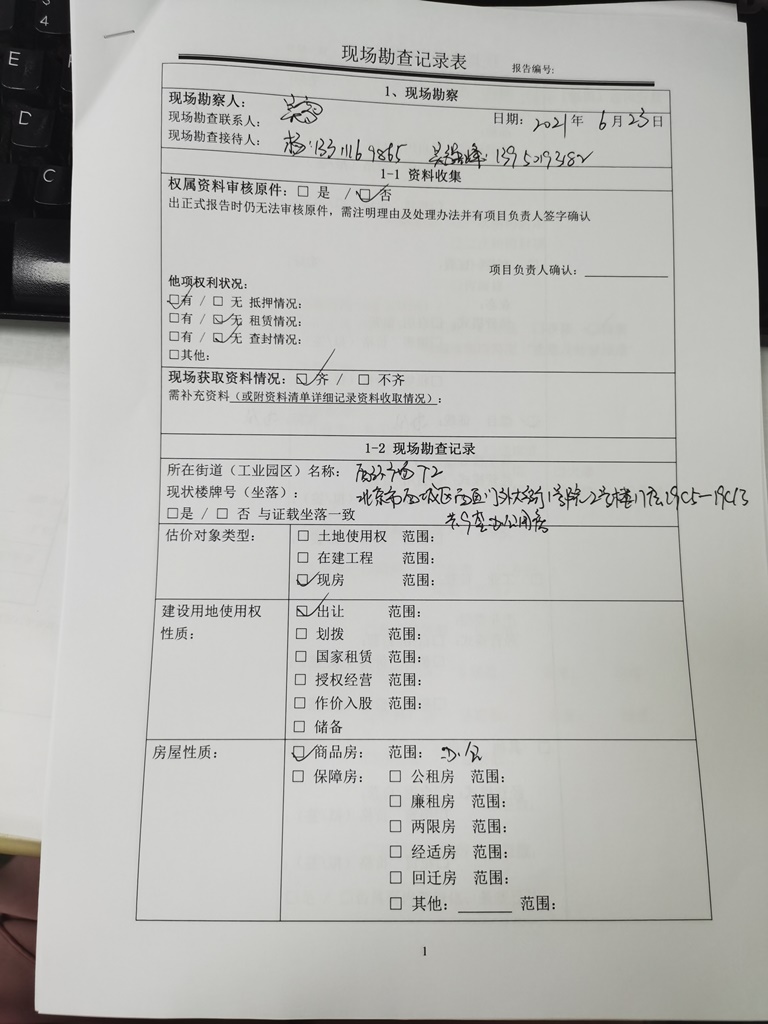 现场勘查记录表
报告编号:
1、现场勘察
现场勘察人：
现场勘查联系人： 日期：2021年 6月23日
现场勘查接待人： 杨：13311169865
1-1 资料收集
权属资料审核原件：□ 是 / ☑ 否
出正式报告时仍无法审核原件，需注明理由及处理办法并有项目负责人签字确认
项目负责人确认：________
他项权利状况：
☑有 / □ 无 抵押情况：
□有 / ☑ 无 租赁情况：
□有 / ☑ 无 查封情况：
□其他：
现场获取资料情况：☑ 齐 / □ 不齐
需补充资料（或附资料清单详细记录资料收取情况）：
1-2 现场勘查记录
所在街道（工业园区）名称： T2
现状楼牌号（坐落）： 北京市西城区 1号院2号楼 19C5-19C13
□是 / □ 否 与证载坐落一致 共9套办公用房
估价对象类型： □ 土地使用权 范围：
□ 在建工程 范围：
☑ 现房 范围：
建设用地使用权性质： ☑ 出让 范围：
□ 划拨 范围：
□ 国家租赁 范围：
□ 授权经营 范围：
□ 作价入股 范围：
□ 储备
房屋性质： ☑ 商品房： 范围： 办公
□ 保障房： □ 公租房 范围：
□ 廉租房 范围：
□ 两限房 范围：
□ 经适房 范围：
□ 回迁房 范围：
□ 其他：______ 范围：
1
4
E
D
C